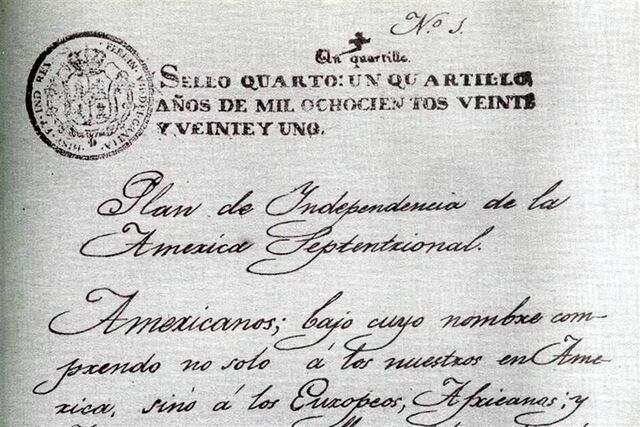 Nº 1.
Un quartillo.
SELLO QUARTO: UN QUARTILLO
AÑOS DE MIL OCHOCIENTOS VEINTE
Y VEINTE Y UNO.
Plan de Independencia de la
America Septentrional.
Americanos; bajo cuyo nombre com-
prendo no solo á los nuestros en Ame-
rica, sinó á los Europeos, Africanos; y